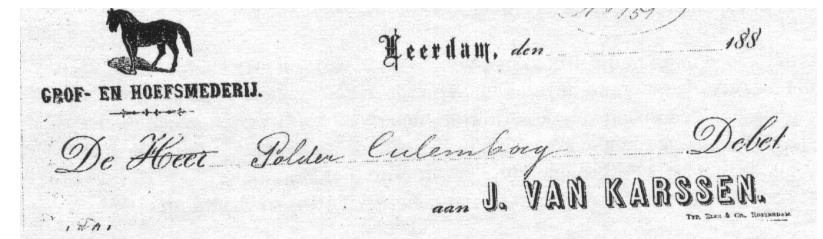 No 159
Leerdam, den 188
GROF- EN HOEFSMEDERIJ.
De Heer Polder Culemborg Debet
aan J. VAN KARSSEN.